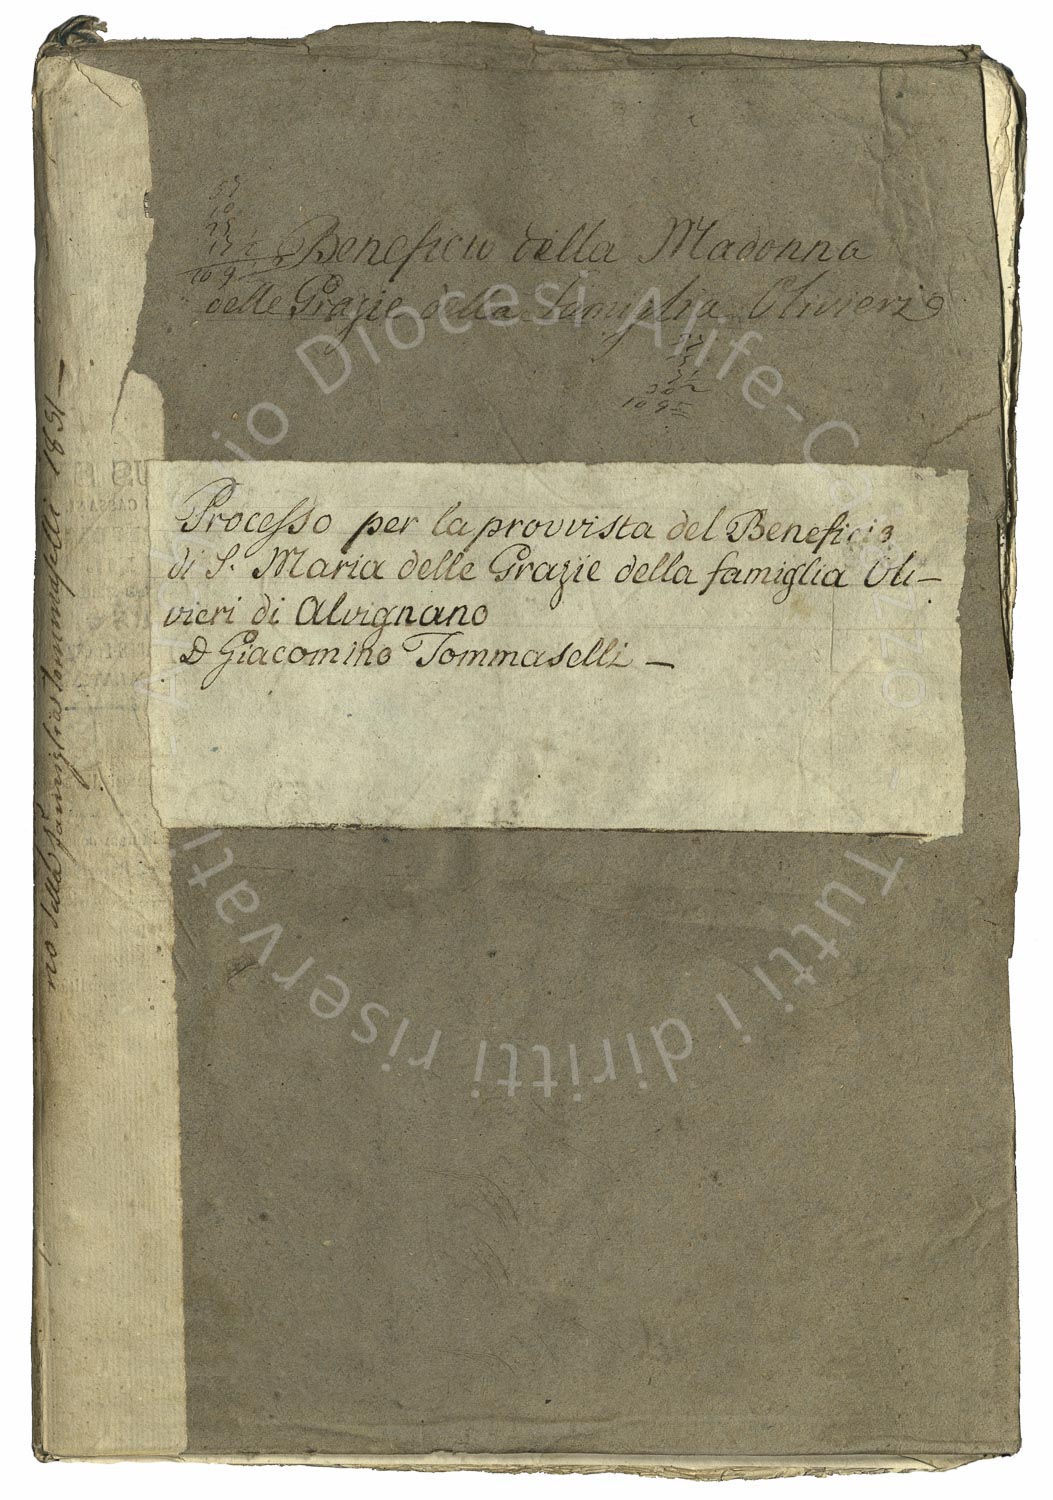 Beneficio della Madonna
delle Grazie della famiglia Olivieri
109
109
Processo per la provvista del Beneficio
di S. Maria delle Grazie della famiglia Oli-
vieri di Alvignano
D Giacomino Tommaselli –
della famiglia Tommaselli 1851 –
Archivio Diocesi Alife-Caiazzo – Tutti i diritti riservati